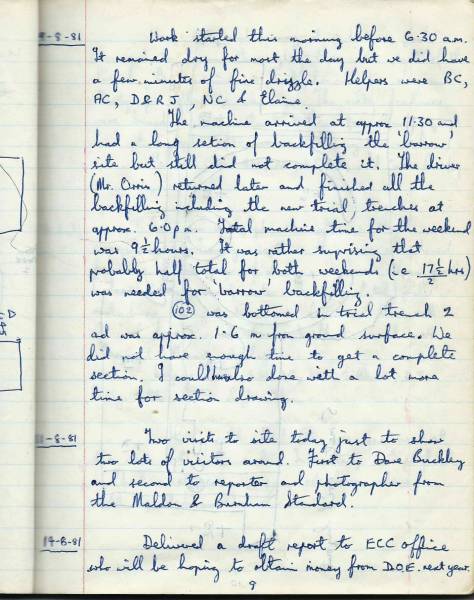 -8-81 Work started this morning before 6.30 a.m.
It remained dry for most the day but we did have
a few minutes of fine drizzle. Helpers were BC,
AC, D&RJ, NC & Elaine.
The machine arrived at approx 11.30 and
had a long setion of backfilling the 'barrow'
site but still did not complete it. The driver
(Mr. Orris) returned later and finished all the
backfilling including the new trial trenches at
approx. 6.0p.m. Total machine time for the weekend
was 9½ hours. It was rather suprising that
probably half total for both weekends (i.e 17½ hrs)
2
was needed for 'barrow' backfilling.
102 was bottomed in trial trench 2
ad was approx. 1.6 m from ground surface. We
did not have enough time to get a complete
section. I could also done with a lot more
time for section drawing.
-8-81 Two visits to site today just to show
two lots of visitors around. First to Dave Buckley
and second to reporter and photographer from
the Maldon & Burnham Standard.
14-8-81 Delivered a draft report to ECC office
who will be hoping to obtain money from D.O.E. next year.
9